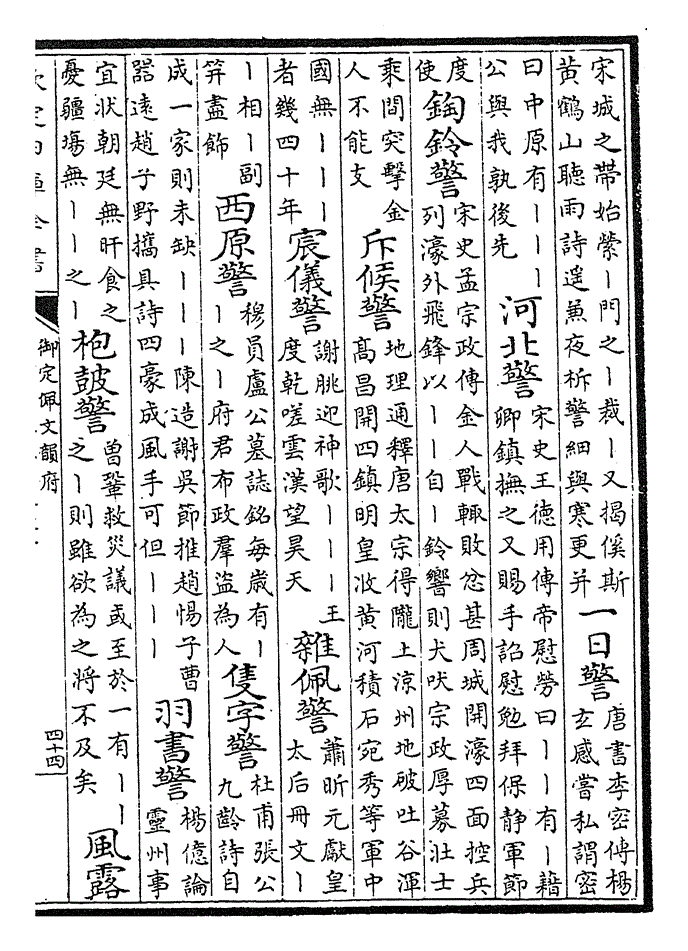 宋城之帶始縈丨門之丨裁丨又揭傒斯
黃鶴山聽雨詩遥兼夜柝警細與寒更并
一日警
唐書李密傳楊
玄感嘗私謂密
曰中原有丨丨丨
公與我孰後先
河北警
宋史王德用傳帝慰勞曰丨丨有丨藉
卿鎮撫之又賜手詔慰勉拜保静軍節
度
使
鋾鈴警
宋史孟宗政傳金人戰輒敗忿甚周城開濠四面控兵
列濠外飛鋒以丨丨自丨鈴響則犬吠宗政厚募壯士
乘間突擊金
人不能支
斥候警
地理通釋唐太宗得隴土涼州地破吐谷渾
髙昌開四鎮明皇收黄河積石宛秀等軍中
國無丨丨丨
者幾四十年
宸儀警
謝朓迎神歌丨丨丨王
度乾嗟雲漢望昊天
雜佩警
蕭昕元獻皇
太后冊文丨
丨相丨副
笄盡飾
西原警
穆員盧公墓誌銘每歳有丨
丨之丨府君布政羣盜為人
隻字警
杜甫張公
九齡詩自
成一家則未缺丨丨丨陳造謝吳節推趙惕子曹
噐遠趙子野攜具詩四豪成風手可但丨丨丨
羽書警
楊億論
靈州事
宜狀朝廷無旰食之
憂疆場無丨丨之丨
枹鼓警
曽鞏救災議或至於一有丨丨
之丨則雖欲為之將不及矣
風露
欽定四庫全書
御定佩文韻府
四十四